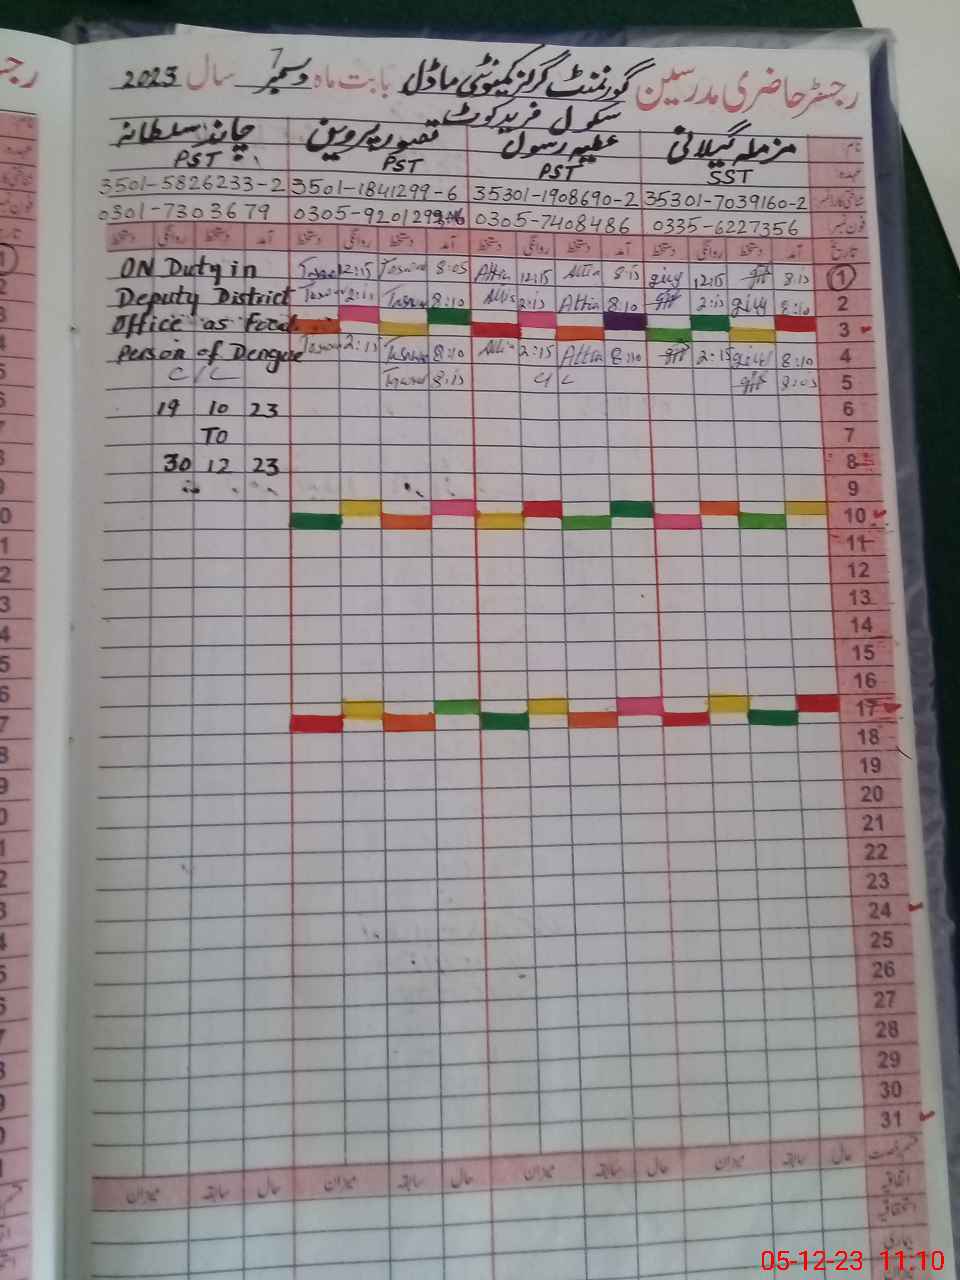 رجسٹر حاضری مدرسین گورنمنٹ گرلز کمیونٹی ماڈل بابت ماہ دسمبر سال 2023
سکول فرید کوٹ
نام مزملہ گیلانی عطیہ رسول تصور پروین چاند سلطانہ
عہدہ SST PST PST PST
35301-7039160-2 35301-1908690-2 3501-1841299-6 3501-5826233-2
فون نمبر 0335-6227356 0305-7408486 0305-9201299 0301-7303679
تاریخ آمد دستخط روانگی دستخط آمد دستخط روانگی دستخط آمد دستخط روانگی دستخط آمد دستخط روانگی دستخط
1 8:15 12:15 8:15 Attia 12:15 Attia 8:05 12:15 ON Duty in
2 8:10 2:15 8:10 Attia 2:15 8:10 2:15 Deputy District
3 Office as Focal
4 8:10 2:15 8:10 Attia 2:15 8:10 2:15 Person of Dengue
5 8:05 C/L 8:15 C/L
6 19 10 23
7 TO
8 30 12 23
9
10
11
12
13
14
15
16
17
18
19
20
21
22
23
24
25
26
27
28
29
30
31
قسم رخصت حال سابقہ میزان حال سابقہ میزان حال سابقہ میزان حال سابقہ میزان
اتفاقیہ
استحقاقیہ
بیماری
05-12-23 11:10